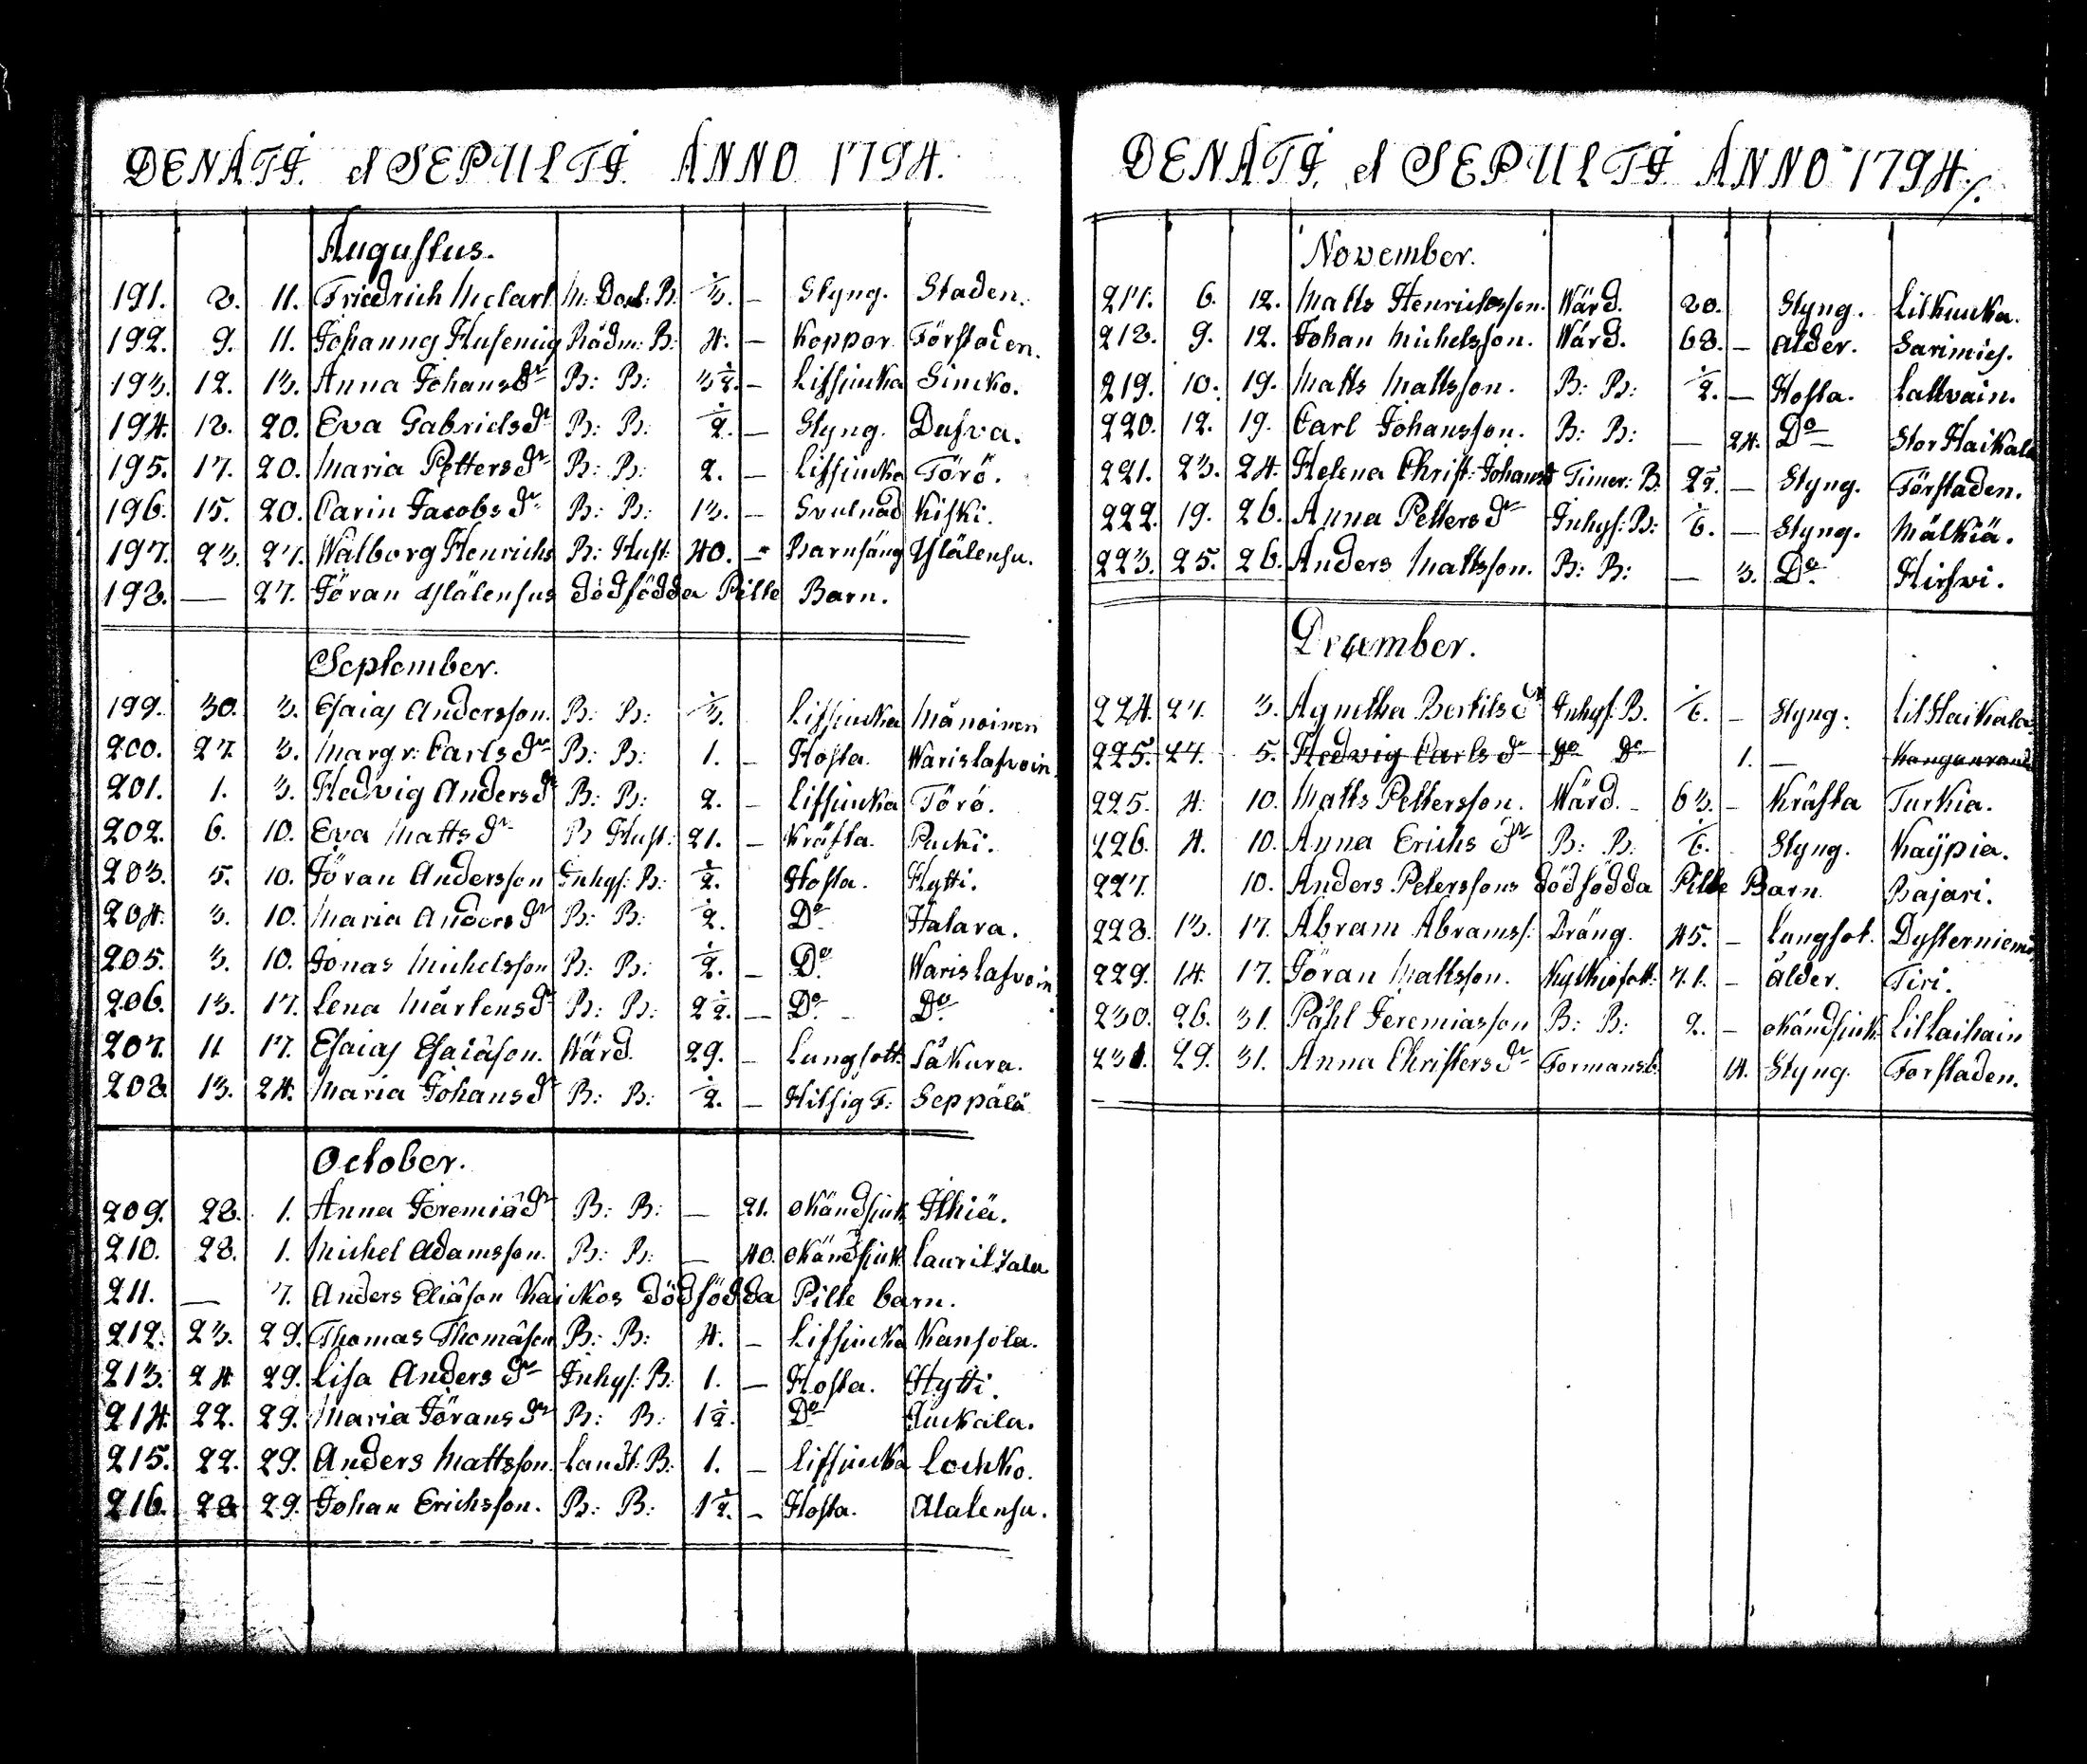 DENATI. & SEPULTI. ANNO 1794.
Augustus.
191. 8. 11. Friedrich Melart M: Doct: B: 1/3. — Slyng. Staden.
192. 9. 11. Johanng Husenius Rådm: B: 4. — Koppor. Förstaden.
193. 12. 13. Anna Johans dr B: B: 3 1/2. — Lissiucka Sincko.
194. 18. 20. Eva Gabriels dr B: B: 1/2. — Slyng. Dufva.
195. 17. 20. Maria Petters dr B: B: 2. — Lissiucka Törö.
196. 15. 20. Carin Jacobs dr B: B: 13. — Svulnad Kiski.
197. 23. 27. Walborg Henrichs B: Hust: 40. — Barnsäng Ylälensu.
198. — 27. Jöran Ylälensus dödfödda Pille Barn.
September.
199. 30. 3. Esaias Andersson. B: B: 1/3. Lissiucka Mänoinen
200. 27. 3. Margr: Carls dr B: B: 1. — Hosta. Warislasvoin.
201. 1. 3. Hedvig Anders dr B: B: 2. — Lissiucka Törö.
202. 6. 10. Eva Matts dr B Hust: 21. — Kräfta. Pucki.
203. 5. 10. Jöran Andersson Inhys: B: 1/2. Hosta. Hytti.
204. 3. 10. Maria Anders dr B: B: 1/2. Do Halara.
205. 3. 10. Jonas Michelsson B: B: 1/2. — Do Warislasvoin
206. 13. 17. Lena Mårtens dr B: B: 2 1/2. — Do Do
207. 11 17. Esaias Esaiäson. Wärd. 29. — Lungsott: Säkura.
208. 13. 24. Maria Johans dr B: B: 1/2. — Hitsig F: Seppälä
October.
209. 28. 1. Anna Jeremiä dr B: B: — 21. Okändsiuk Ihiä.
210. 28. 1. Michel Adamsson. B: B: — 40. Okändsiuk Lauritzala
211. — 7. Anders Eliäson Kaickos dödfödda Pille barn.
212. 23. 29. Thomas Thomäson B: B: 4. — Lissiucka Kansola.
213. 24 29. Lisa Anders dr Inhys: B: 1. — Hosta. Hytti.
214. 22. 29. Maria Jörans dr B: B: 1 1/2. Do Juckala.
215. 22. 29. Anders Mattsson. Landt: B: 1. — Lissiucka Lochko.
216. 28 29. Johan Erichsson. B: B: 1 1/2. — Hosta. Alalensu.
DENATI. & SEPULTI. ANNO 1794.
November.
217. 6. 12. Matts Henrichsson. Wärd. 20. Slyng. Litkucka.
218. 9. 12. Johan Michelsson. Wärd. 68. — Ålder. Sarimies.
219. 10. 19. Matts Mattsson. B: B: 1/2. — Hosta. Lattvain.
220. 12. 19. Carl Johansson. B: B: — 24. Do Stor Haikala
221. 23. 24. Helena Christ: Johans dr Timer: B: — Slyng. Förstaden.
222. 19. 26. Anna Petters dr Inhys: B: 1/6. — Slyng. Mälkiä.
223. 25. 26. Anders Mattsson. B: B: — 3. Do Hirfwi.
December.
224. 27. 3. Agnetha Bertils dr Inhys: B. 1/6. — Slyng. Lil Haikala
225. 24. 5. Hedvig Carls dr Do Do 1. — Kanganranta
225. 4. 10. Matts Pettersson. Wärd. 63. — Kräfta Turkia.
226. 4. 10. Anna Erichs dr B: B: 1/6. Slyng. Käÿpiä.
227. 10. Anders Peterssons dödfödda Pille Barn. Bajari.
228. 13. 17. Abram Abramss: Dräng. 45. — Lungsot. Dysterniemi
229. 14. 17. Jöran Mattsson. 71. — Ålder. Tiri.
230. 26. 31. Påhl Jeremiasson B: B: 2. — Okändsiuk Lillaihain
231. 29. 31. Anna Christers dr Formansb: 14. Slyng. Forstaden.